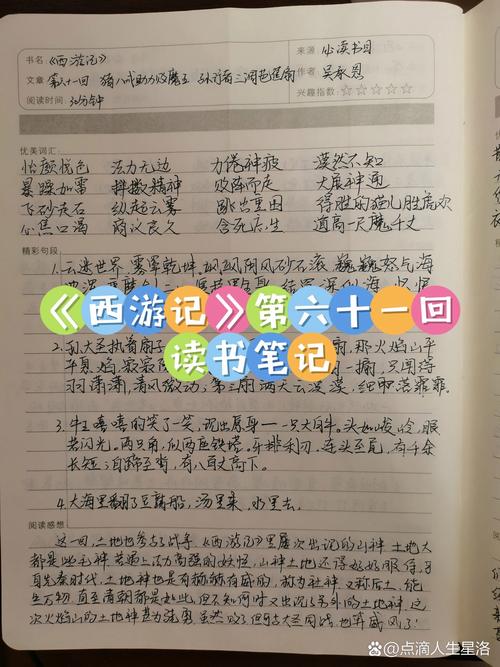 书名《西游记》
来源 必读书目
文章 第六十一回 猪八戒助力败魔王 孙行者三调芭蕉扇
作者 吴承恩
阅读时间: 30分钟
兴趣指数: ☆☆☆☆☆
优美词汇:
怡颜悦色 法力无边 力倦神疲 漠然不知
暴躁如雷 抖擞精神 败阵而走 大展神通
飞砂走石 纵起云雾 跳出重围 得胜的猫儿胜虎欢
心焦口渴 商议良久 舍死忘生 道高一尺魔千丈
精彩句段
1.云迷世界,雾罩乾坤。飒飒阴风砂石滚,巍巍怒气海
《西游记》第六十一回
读书笔记
2.孙大圣执着扇子
扇,那火焰山平
平息焰,寂寂除
一搧,只闻得习
习潇潇,清风微动;第三扇,满天云漠漠,细雨落霏霏。
3.牛王嘻嘻的笑了一笑,现出原身——一只大白牛。头如峻岭,眼
若闪光。两只角,似两座铁塔。牙排利刃。连头至尾,有千余
长短;自蹄至背,有八百丈高下。
4.大海里翻了豆腐船,汤里来,水里去。
阅读感想
这一回,土地也参与了战争。《西游记》里屡次出现的山神、土地大
都是些毛神,若遇上法力高强的妖怪,山神土地还得好好服侍。
自先秦时代,土地神也是有
有威的,称为社神,又称后土,能
生万物,直至清朝都是如此,但不知何时又出现了另外的土地神。这
次火焰山的土地神
点滴人生星洛